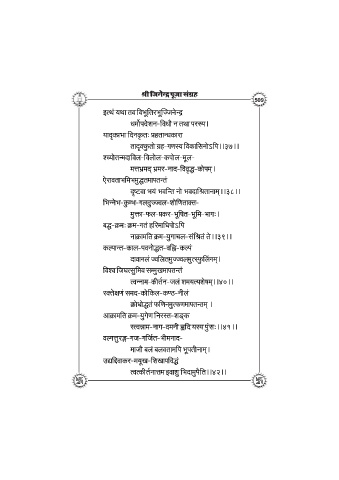 श्री जिनेन्द्र पूजा संग्रह
509
इत्थं यथा तव विभूतिरभूज्जिनेन्द्र
धर्मोपदेशन-विधौ न तथा परस्य।
यादृक्प्रभा दिनकृतः प्रहतान्धकारा
तादृक्कुतो ग्रह-गणस्य विकासिनोऽपि।।३७।।
श्च्योतन्मदाविल-विलोल-कपोल-मूल-
मत्तभ्रमद् भ्रमर-नाद-विवृद्ध-कोपम्।
ऐरावताभमिभमुद्धतमापतन्तं
दृष्ट्वा भयं भवन्ति नो भवदाश्रितानाम्।।३८।।
भिन्नेभ-कुम्भ-गलदुज्ज्वल-शोणिताक्त-
मुक्ता-फल-प्रकर-भूषित-भूमि-भागः।
बद्ध-क्रमः क्रम-गतं हरिणाधिपोऽपि
नाक्रामति क्रम-युगाचल-संश्रितं ते।।३९।।
कल्पान्त-काल-पवनोद्धत-वह्नि-कल्पं
दावानलं ज्वलितमुज्ज्वलमुत्स्फुलिंगम्।
विश्वं जिघत्सुमिव सम्मुखमापतन्तं
त्वन्नाम-कीर्तन-जलं शमयत्यशेषम्।।४०।।
रक्तेक्षणं समद-कोकिल-कण्ठ-नीलं
क्रोधोद्धतं फणिनमुत्फणमापतन्तम् ।
आक्रामति क्रम-युगेण निरस्त-शङ्क
स्त्वन्नाम-नाग-दमनी हृदि यस्य पुंसः।।४१।।
वल्गत्तुरङ्ग-गज-गर्जित-भीमनाद-
माजौ बलं बलवतामपि भूपतीनाम्।
उद्यद्दिवाकर-मयूख-शिखापविद्धं
त्वत्कीर्तनात्तम इवाशु भिदामुपैति।।४२।।